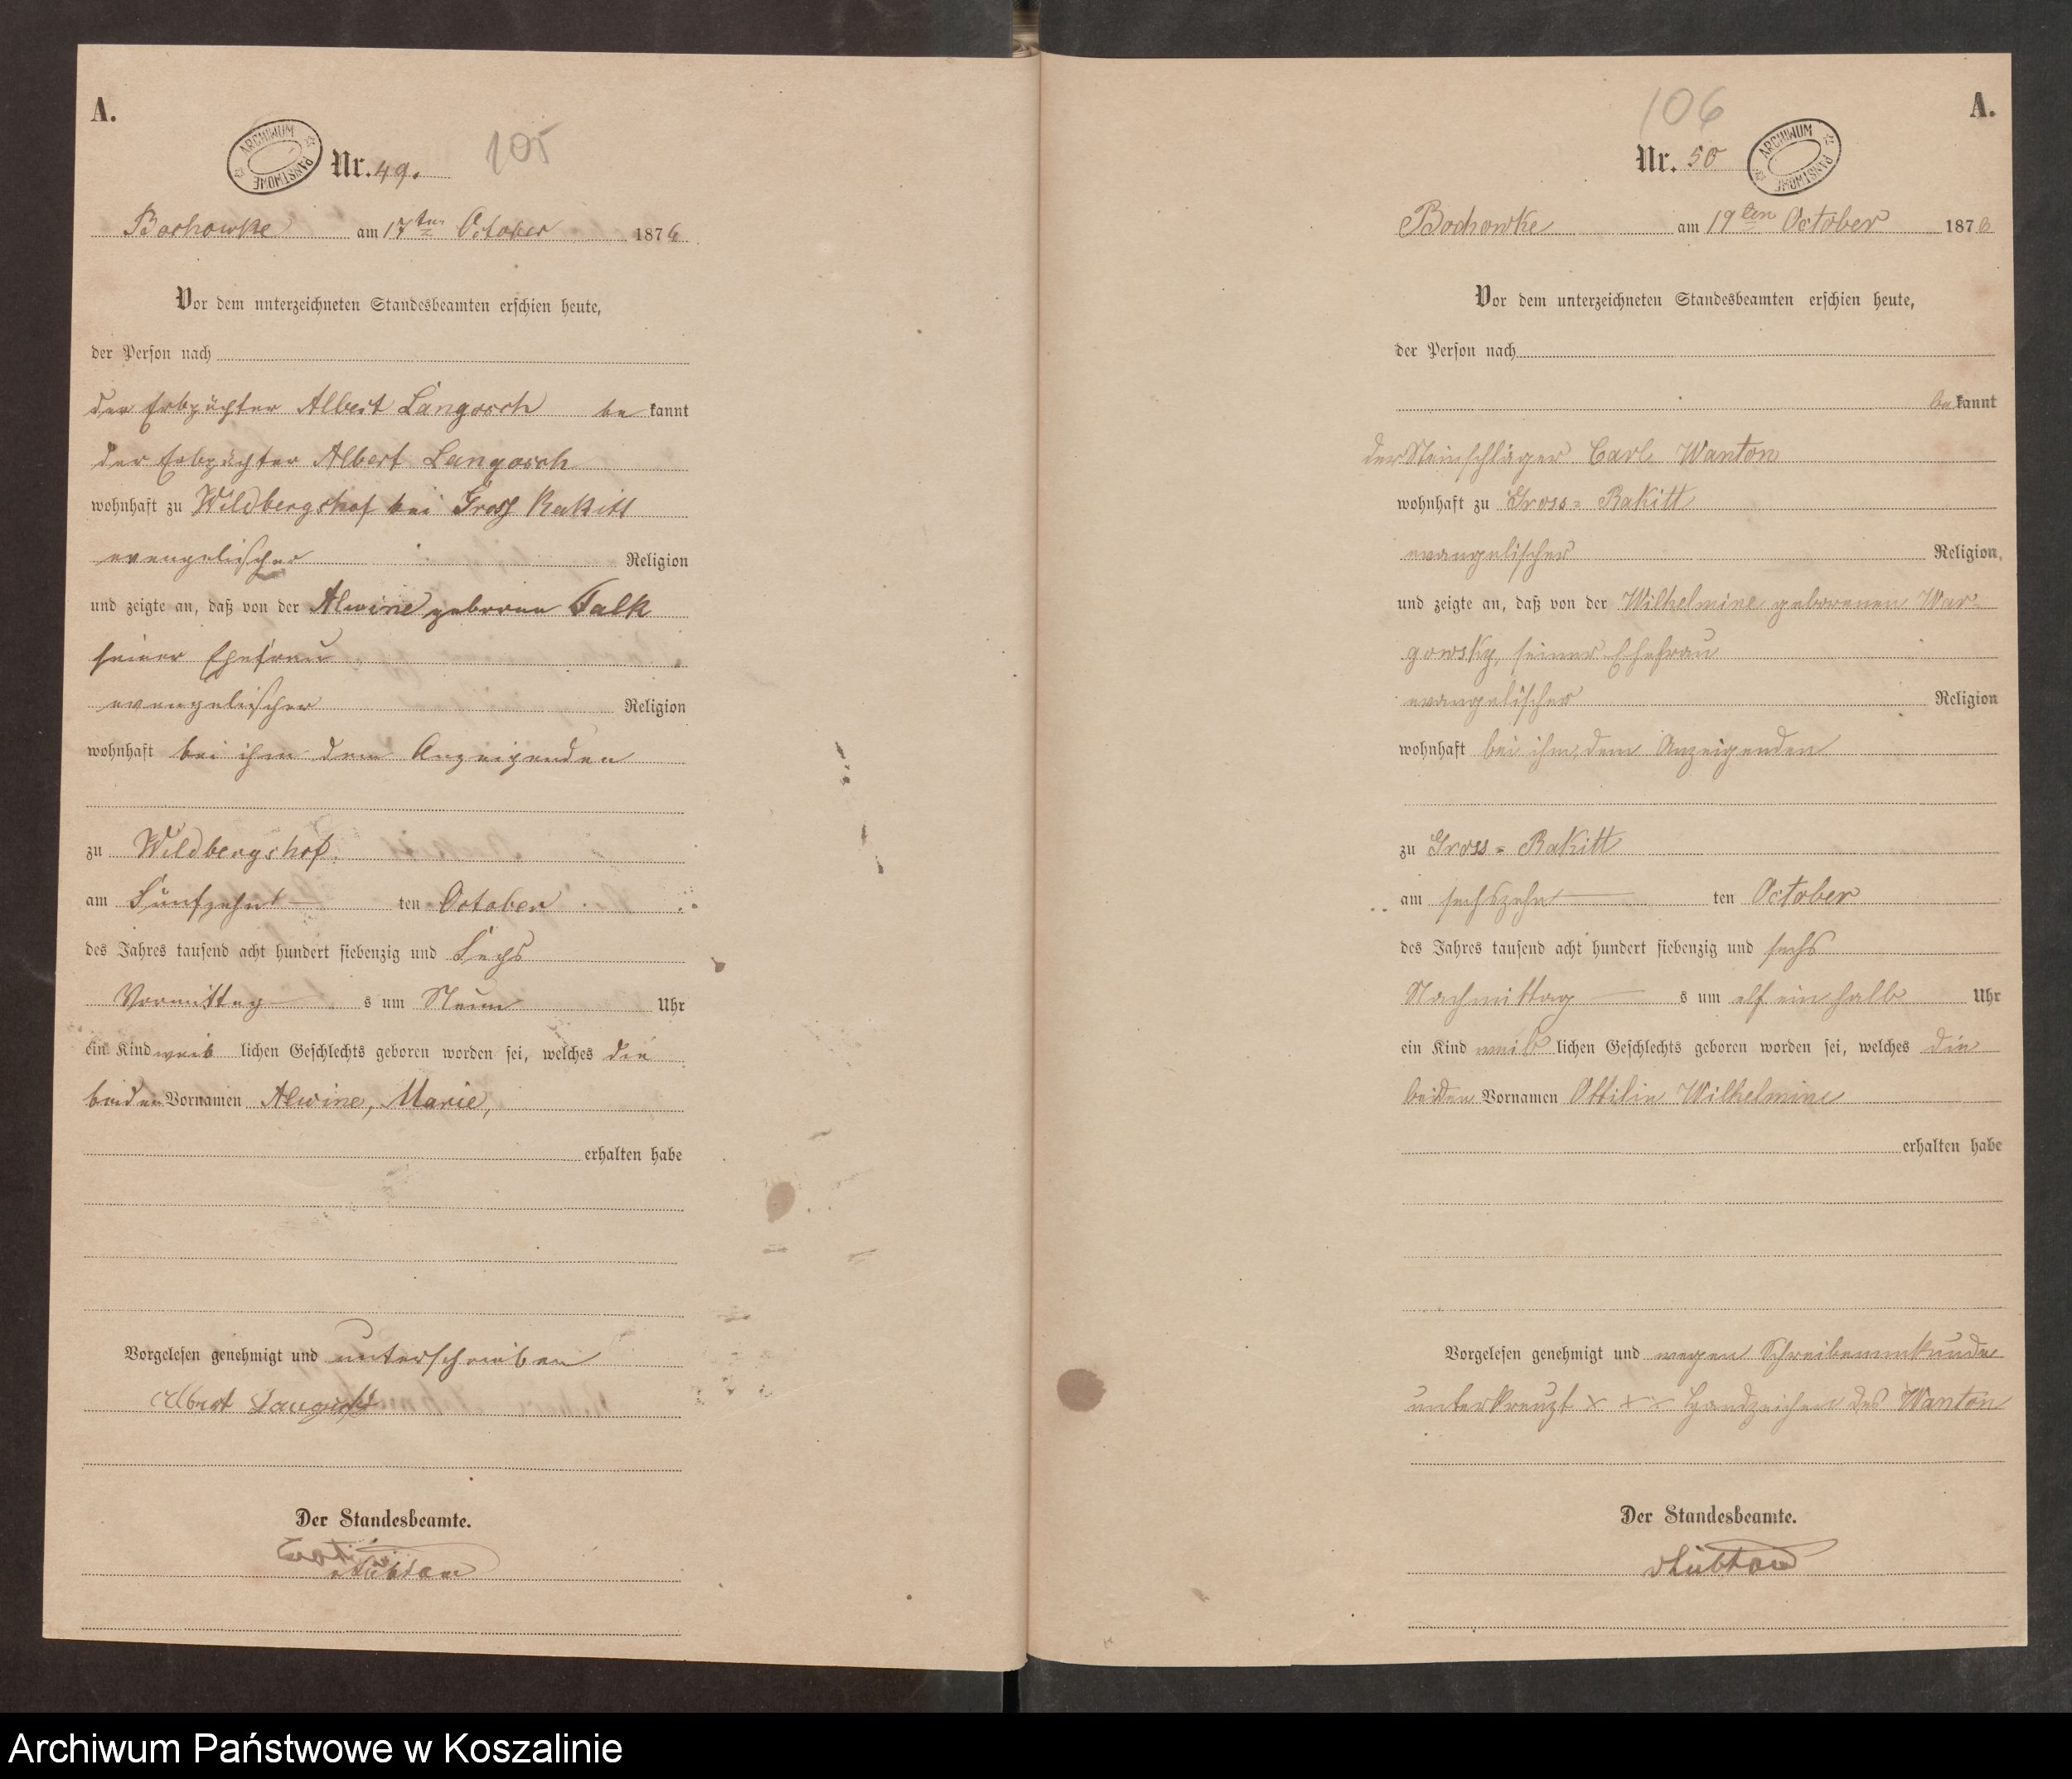 A.
ARCHIWUM PAŃSTWOWE
Nr. 49.
105
Bochowke am 17ten October 1876
Vor dem unterzeichneten Standesbeamten erschien heute,
der Person nach
der Erbpächter Albert Langosch be kannt
der Erbpächter Albert Langosch
wohnhaft zu Wildbergshof bei Gross Rakitt
evangelischer Religion
und zeigte an, daß von der Alwine geborene Falk
seiner Ehefrau
evangelischer Religion
wohnhaft bei ihm dem Anzeigenden
zu Wildbergshof.
am Fünfzehn ten October
des Jahres tausend acht hundert siebenzig und Sechs
Vormittag s um Neun Uhr
ein Kind weib lichen Geschlechts geboren worden sei, welches die
beiden Vornamen Alwine, Marie,
erhalten habe
Vorgelesen genehmigt und unterschrieben
Albert Langosch
Der Standesbeamte.
106
A.
Nr. 50
ARCHIWUM PAŃSTWOWE
Bochowke am 19ten October 1876
Vor dem unterzeichneten Standesbeamten erschien heute,
der Person nach
be kannt
der Steinschläger Carl Wanton
wohnhaft zu Gross-Rakitt
evangelischer Religion,
und zeigte an, daß von der Wilhelmine geborenen War-
gowsky, seiner Ehefrau
evangelischer Religion
wohnhaft bei ihm, dem Anzeigenden
zu Gross-Rakitt
am sechszehn ten October
des Jahres tausend acht hundert siebenzig und sechs
Nachmittag s um elf ein halb Uhr
ein Kind weib lichen Geschlechts geboren worden sei, welches die
beiden Vornamen Ottilie Wilhelmine
erhalten habe
Vorgelesen genehmigt und wegen Schreibensunkunde
unterkreuzt x x x Handzeichen des Wanton
Der Standesbeamte.
Archiwum Państwowe w Koszalinie